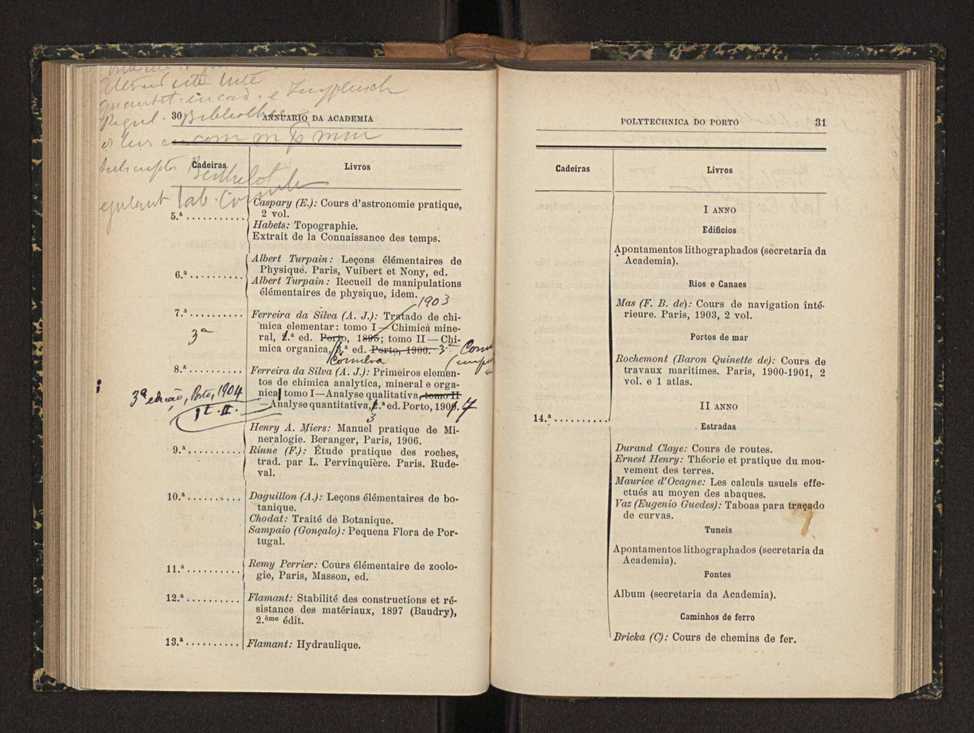 30 ANNUARIO DA ACADEMIA
com
Cadeiras Livros
Berthelot
Tab.
5.ª .......... Caspary (E.): Cours d'astronomie pratique,
2 vol.
Habets: Topographie.
Extrait de la Connaissance des temps.
6.ª .......... Albert Turpain: Leçons élémentaires de
Physique. Paris, Vuibert et Nony, ed.
Albert Turpain: Recueil de manipulations
élémentaires de physique, idem.
1903
7.ª .......... Ferreira da Silva (A. J.): Tratado de chi-
mica elementar: tomo I—Chimica mine-
3ª
ral, ª ed. Porto, 1895; tomo II—Chi-
mica organica, ª ed. Porto, 1900. 3
Coimbra
8.ª .......... Ferreira da Silva (A. J.): Primeiros elemen-
tos de chimica analytica, mineral e orga-
3ª edição, Porto, 1904
nica tomo I—Analyse qualitativa, tomo II
I E. II.
—Analyse quantitativa, ª ed. Porto, 190 7
3
Henry A. Miers: Manuel pratique de Mi-
neralogie. Beranger, Paris, 1906.
9.ª .......... Rinne (F.): Étude pratique des roches,
trad. par L. Pervinquière. Paris. Rude-
val.
10.ª .......... Daguillon (A.): Leçons élémentaires de bo-
tanique.
Chodat: Traité de Botanique.
Sampaio (Gonçalo): Pequena Flora de Por-
tugal.
11.ª .......... Remy Perrier: Cours élémentaire de zoolo-
gie, Paris, Masson, ed.
12.ª .......... Flamant: Stabilité des constructions et ré-
sistance des matériaux, 1897 (Baudry),
2.ème édit.
13.ª .......... Flamant: Hydraulique.
POLYTECHNICA DO PORTO 31
Cadeiras Livros
I ANNO
Edificios
Apontamentos lithographados (secretaria da
Academia).
Rios e Canaes
Mas (F. B. de): Cours de navigation inté-
rieure. Paris, 1903, 2 vol.
Portos de mar
Rochemont (Baron Quinette de): Cours de
travaux maritimes. Paris, 1900-1901, 2
vol. e 1 atlas.
II ANNO
14.ª ..........
Estradas
Durand Claye: Cours de routes.
Ernest Henry: Théorie et pratique du mou-
vement des terres.
Maurice d'Ocagne: Les calculs usuels effe-
ctués au moyen des abaques.
Vaz (Eugenio Guedes): Taboas para traçado
de curvas.
Tuneis
Apontamentos lithographados (secretaria da
Academia).
Pontes
Album (secretaria da Academia).
Caminhos de ferro
Bricka (C): Cours de chemins de fer.